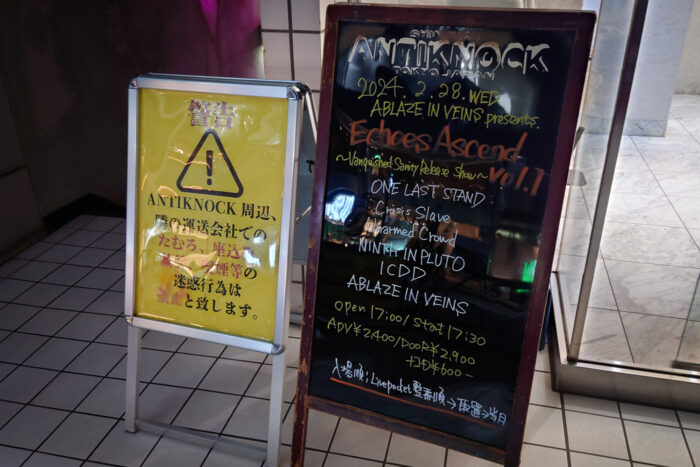 警告
ANTIKNOCK 周辺、
隣の運送会社での
たむろ、座込み、
喫煙等の
迷惑行為は
禁止と致します。
ANTIKNOCK
TOKYO JAPAN
2024. 2. 28. WED
ABLAZE IN VEINS presents.
Echoes Ascend
vol.1
~Vanquished Sanity Release Show~
ONE LAST STAND
Crisis Slave
Unarmed Crowd
NINTH IN PLUTO
ICDD
ABLAZE IN VEINS
Open 17:00/ Start 17:30
ADV¥2,400/DOOR¥2,900
+1D¥600-
入場順; Livepocket 整番順→取置→当日